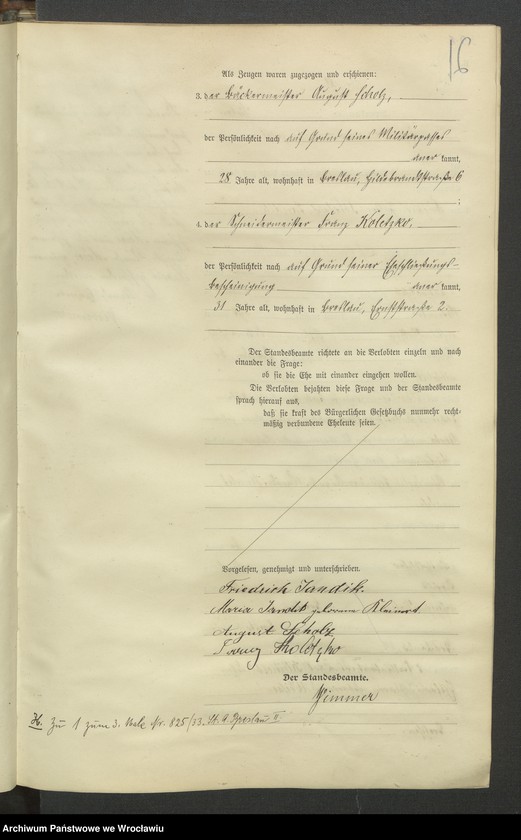 16
Als Zeugen waren zugezogen und erschienen:
3. der Bäckermeister August Scholz,
der Persönlichkeit nach auf Grund seines Militärpasses
aner kannt,
28 Jahre alt, wohnhaft in Breslau, Hildebrandtstraße 6
;
4. der Schneidermeister Franz Koletzko,
der Persönlichkeit nach auf Grund seiner Eheschließungs-
bescheinigung aner kannt,
31 Jahre alt, wohnhaft in Breslau, Ernststraße 2.
Der Standesbeamte richtete an die Verlobten einzeln und nach
einander die Frage:
ob sie die Ehe mit einander eingehen wollen.
Die Verlobten bejahten diese Frage und der Standesbeamte
sprach hierauf aus,
daß sie kraft des Bürgerlichen Gesetzbuchs nunmehr recht-
mäßig verbundene Eheleute seien.
Vorgelesen, genehmigt und unterschrieben.
Friedrich Jandik.
Maria Jandik geborene
August Scholz
Franz Koletzko
Der Standesbeamte.
Zimmer
H. Zu 1 zum 3. Male Nr. 825/33. St. A. Breslau II
Archiwum Państwowe we Wrocławiu